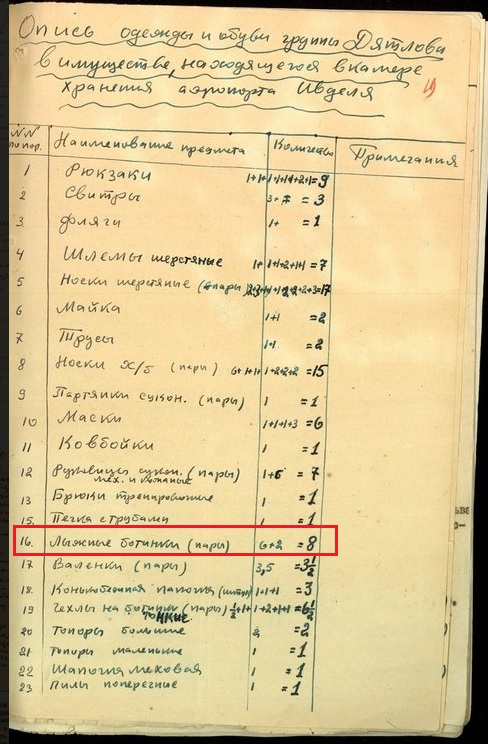 Опись одежды и обуви группы Дятлова
в имуществе, находящегося в камере
хранения аэропорта Ивделя
19
NN по пор. Наименование предмета Количество Примечания
1 Рюкзаки =9
2 Свитры =3
3 Фляги 1+ =1
4 Шлемы шерстяные =7
5 Носки шерстяные (пары) =17
6 Майка 1+1 =2
7 Трусы 1+1 =2
8 Носки х/б (пары) 6+1+1+1+2+2+2 =15
9 Партянки сукон. (пары) 1 =1
10 Маски 1+1+1+3 =6
11 Ковбойки 1 =1
12 Рукавицы сукон. (пары) 1+6 =7
мех. и кожаные
13 Брюки тренировочные 1 =1
15. Печка с трубами 1 =1
16. Лыжные ботинки (пары) 6+2 =8
17 Валенки (пары) 3,5 =3½
18. 1+1+1 =3
19 Чехлы на ботинки (пары) ½+1+1+2+1+1 =6½
20 Топоры большие 2 =2
21 Топоры маленькие 1 =1
22 Шапочка меховая 1 =1
23 Пилы поперечные 1 =1